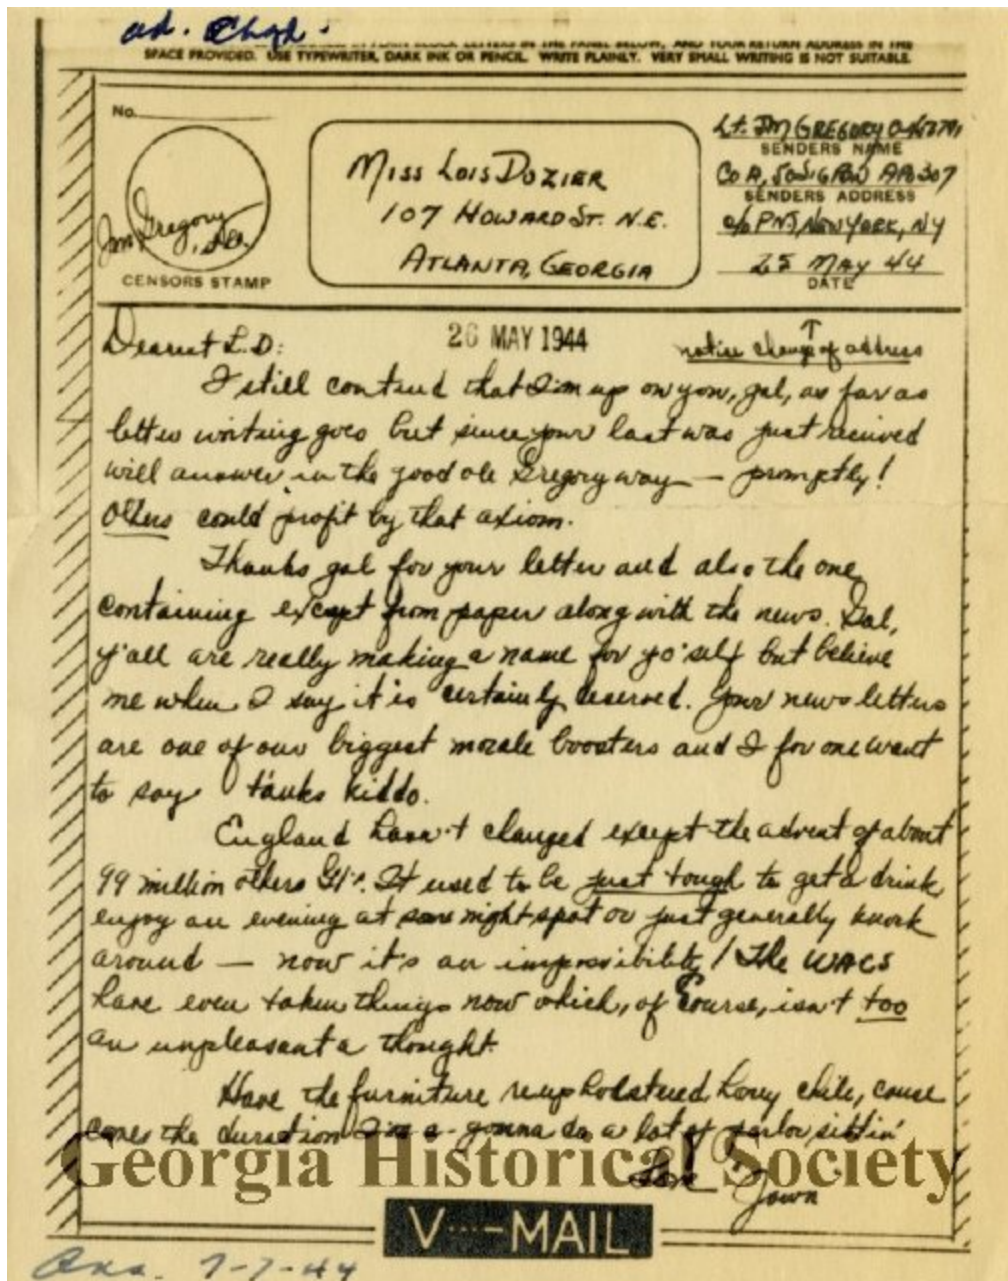 ad. Chgd.
SPACE PROVIDED. USE TYPEWRITER, DARK INK OR PENCIL. WRITE PLAINLY. VERY SMALL WRITING IS NOT SUITABLE.
No.
CENSORS STAMP
Miss Lois Dozier
107 Howard St. N.E.
Atlanta, Georgia
Lt. JM Gregory
SENDERS NAME
Co A, APO 307
SENDERS ADDRESS
New York, NY
25 May 44
DATE
Dearest L.D:
26 MAY 1944
notice change of address
I still contend that I'm up on you, gal, as far as
letter writing goes but since your last was just received
will answer in the good ole Gregory way — promptly!
Others could profit by that axiom.
Thanks gal for your letter and also the one
containing excerpt from paper along with the news. Gal,
y'all are really making a name for yo'self but believe
me when I say it is certainly deserved. Your news letters
are one of our biggest morale boosters and I for one want
to say tanks kiddo.
England hasn't changed except the advent of about
99 million others GI's. It used to be just tough to get a drink
enjoy an evening at some night spot or just generally knock
around — now it's an impossibility! The WACS
have even taken things now which, of course, isn't too
an unpleasant a thought.
Have the furniture reupholstered honey chile, cause
comes the duration I'm a-gonna do a lot of parlor sittin'
Love
Jawn
Georgia Historical Society
V···-MAIL
Ans. 7-7-44